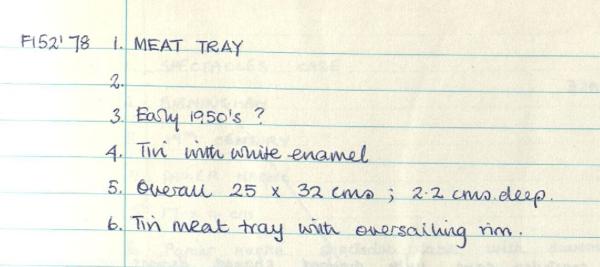 F152'78 1. MEAT TRAY
2.
3. Early 1950's ?
4. Tin with white enamel
5. Overall 25 x 32 cms ; 2.2 cms. deep.
6. Tin meat tray with oversailing rim.